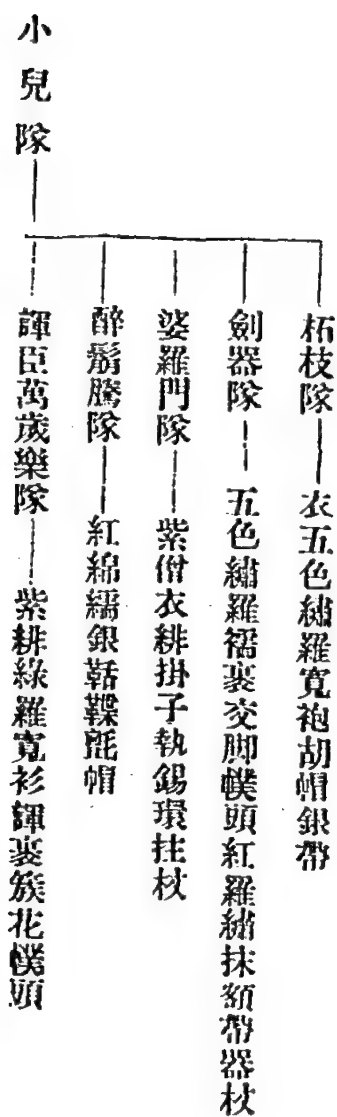 小兒隊
柘枝隊——衣五色繡羅寬袍胡帽銀帶
劍器隊——五色繡羅襦裹交脚幞頭紅羅繡抹額帶器杖
婆羅門隊——紫僧衣緋掛子執錫環拄杖
醉鬍騰隊——紅綿繻銀䩞鞢氈帽
諢臣萬歲樂隊——紫緋綠羅寬衫諢裹簇花幞頭